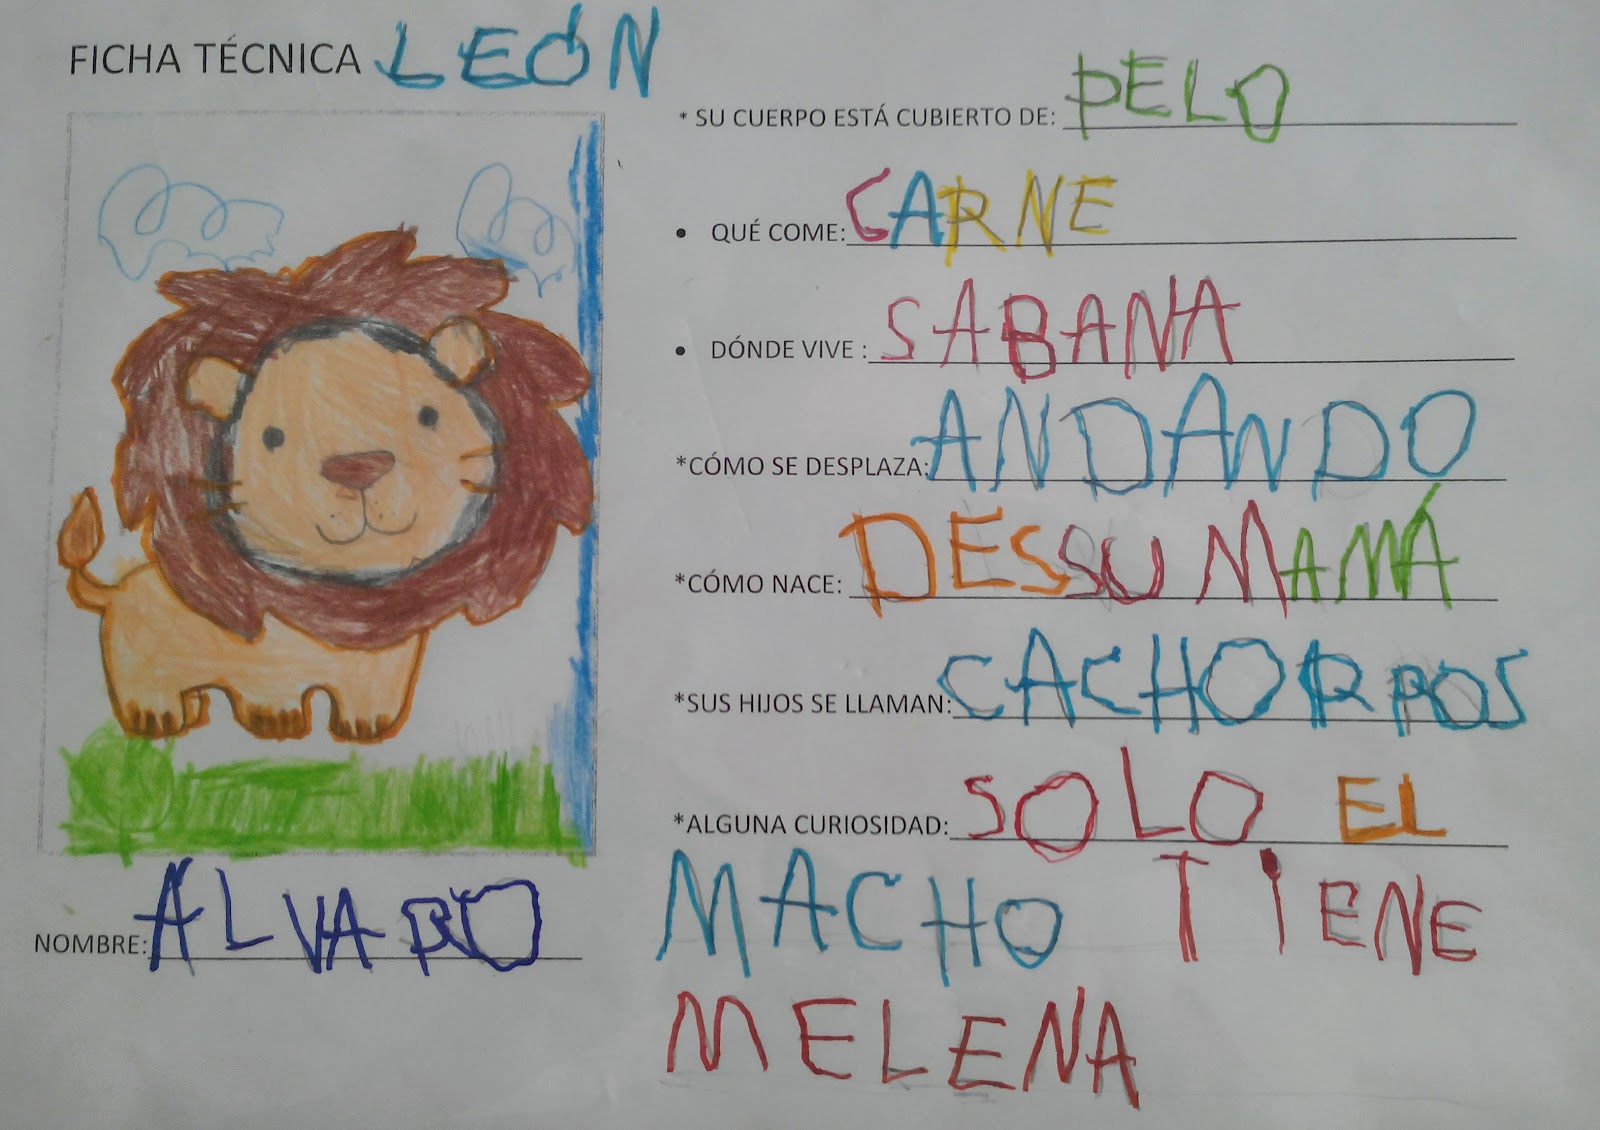 FICHA TÉCNICA LEÓN
* SU CUERPO ESTÁ CUBIERTO DE: PELO
• QUÉ COME: CARNE
• DÓNDE VIVE : SABANA
*CÓMO SE DESPLAZA: ANDANDO
*CÓMO NACE: DES SU MAMÁ
*SUS HIJOS SE LLAMAN: CACHORROS
*ALGUNA CURIOSIDAD: SOLO EL
MACHO TIENE
MELENA
NOMBRE: ALVARO